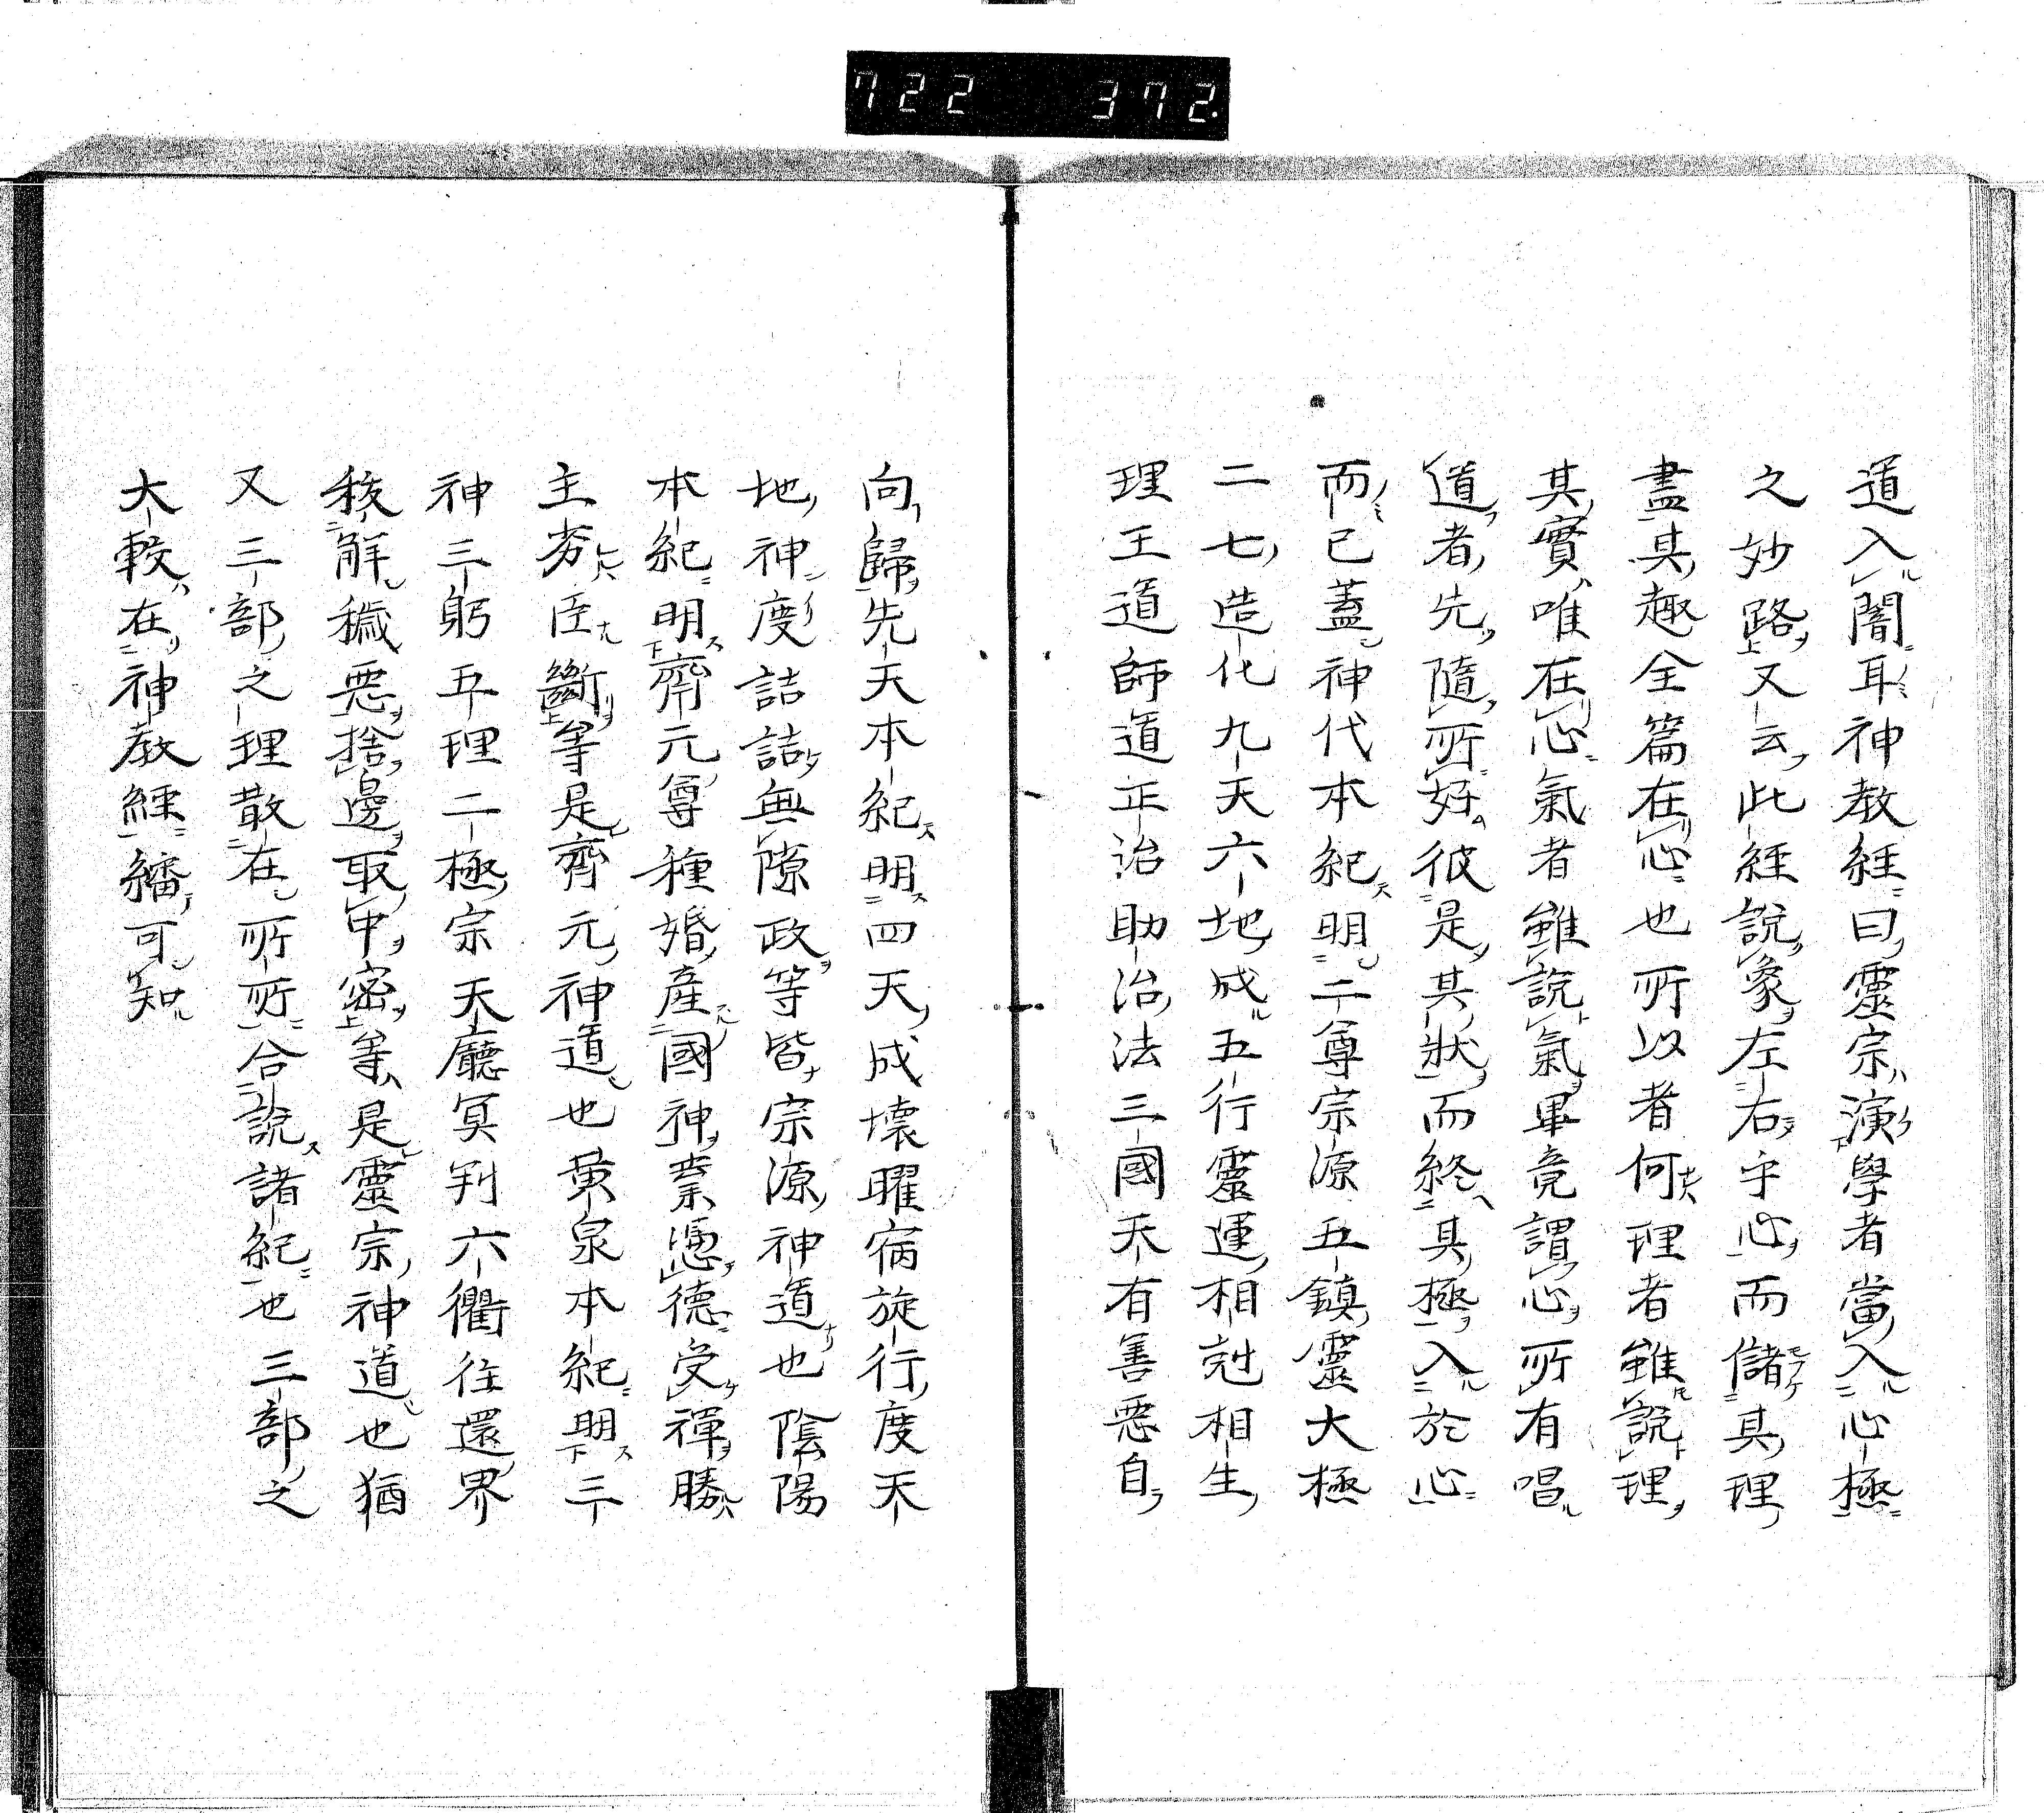 722 372.
道入闇耳神教経曰靈宗演學者當入心極
之妙路又云此経説象左右守心而儲其理
盡其趣全篇在心也所以者何理者雖説理
其實唯在心氣者雖説氣畢竟謂心所有唱
道者先隨所好彼是其狀而終其極入於心
而已蓋神代本紀明二尊宗源五鎮靈大極
二七造化九天六地成五行靈運相尅相生
理王道師道正治助治法三國天有善惡自
向歸先天本紀明四天成壊曜宿旋行度天
地神度詰詰無隙政等皆宗源神道也陰陽
本紀明齊元尊種婚産國神業憑德受禪勝
主劣臣斷等是齊元神道也黄泉本紀明三
神三躬五理二極宗天廳冥判六衢往還界
秡解穢惡捨邊取中密等是靈宗神道也猶
又三部之理散在所所合説諸紀也三部之
大較在神教経繙可知